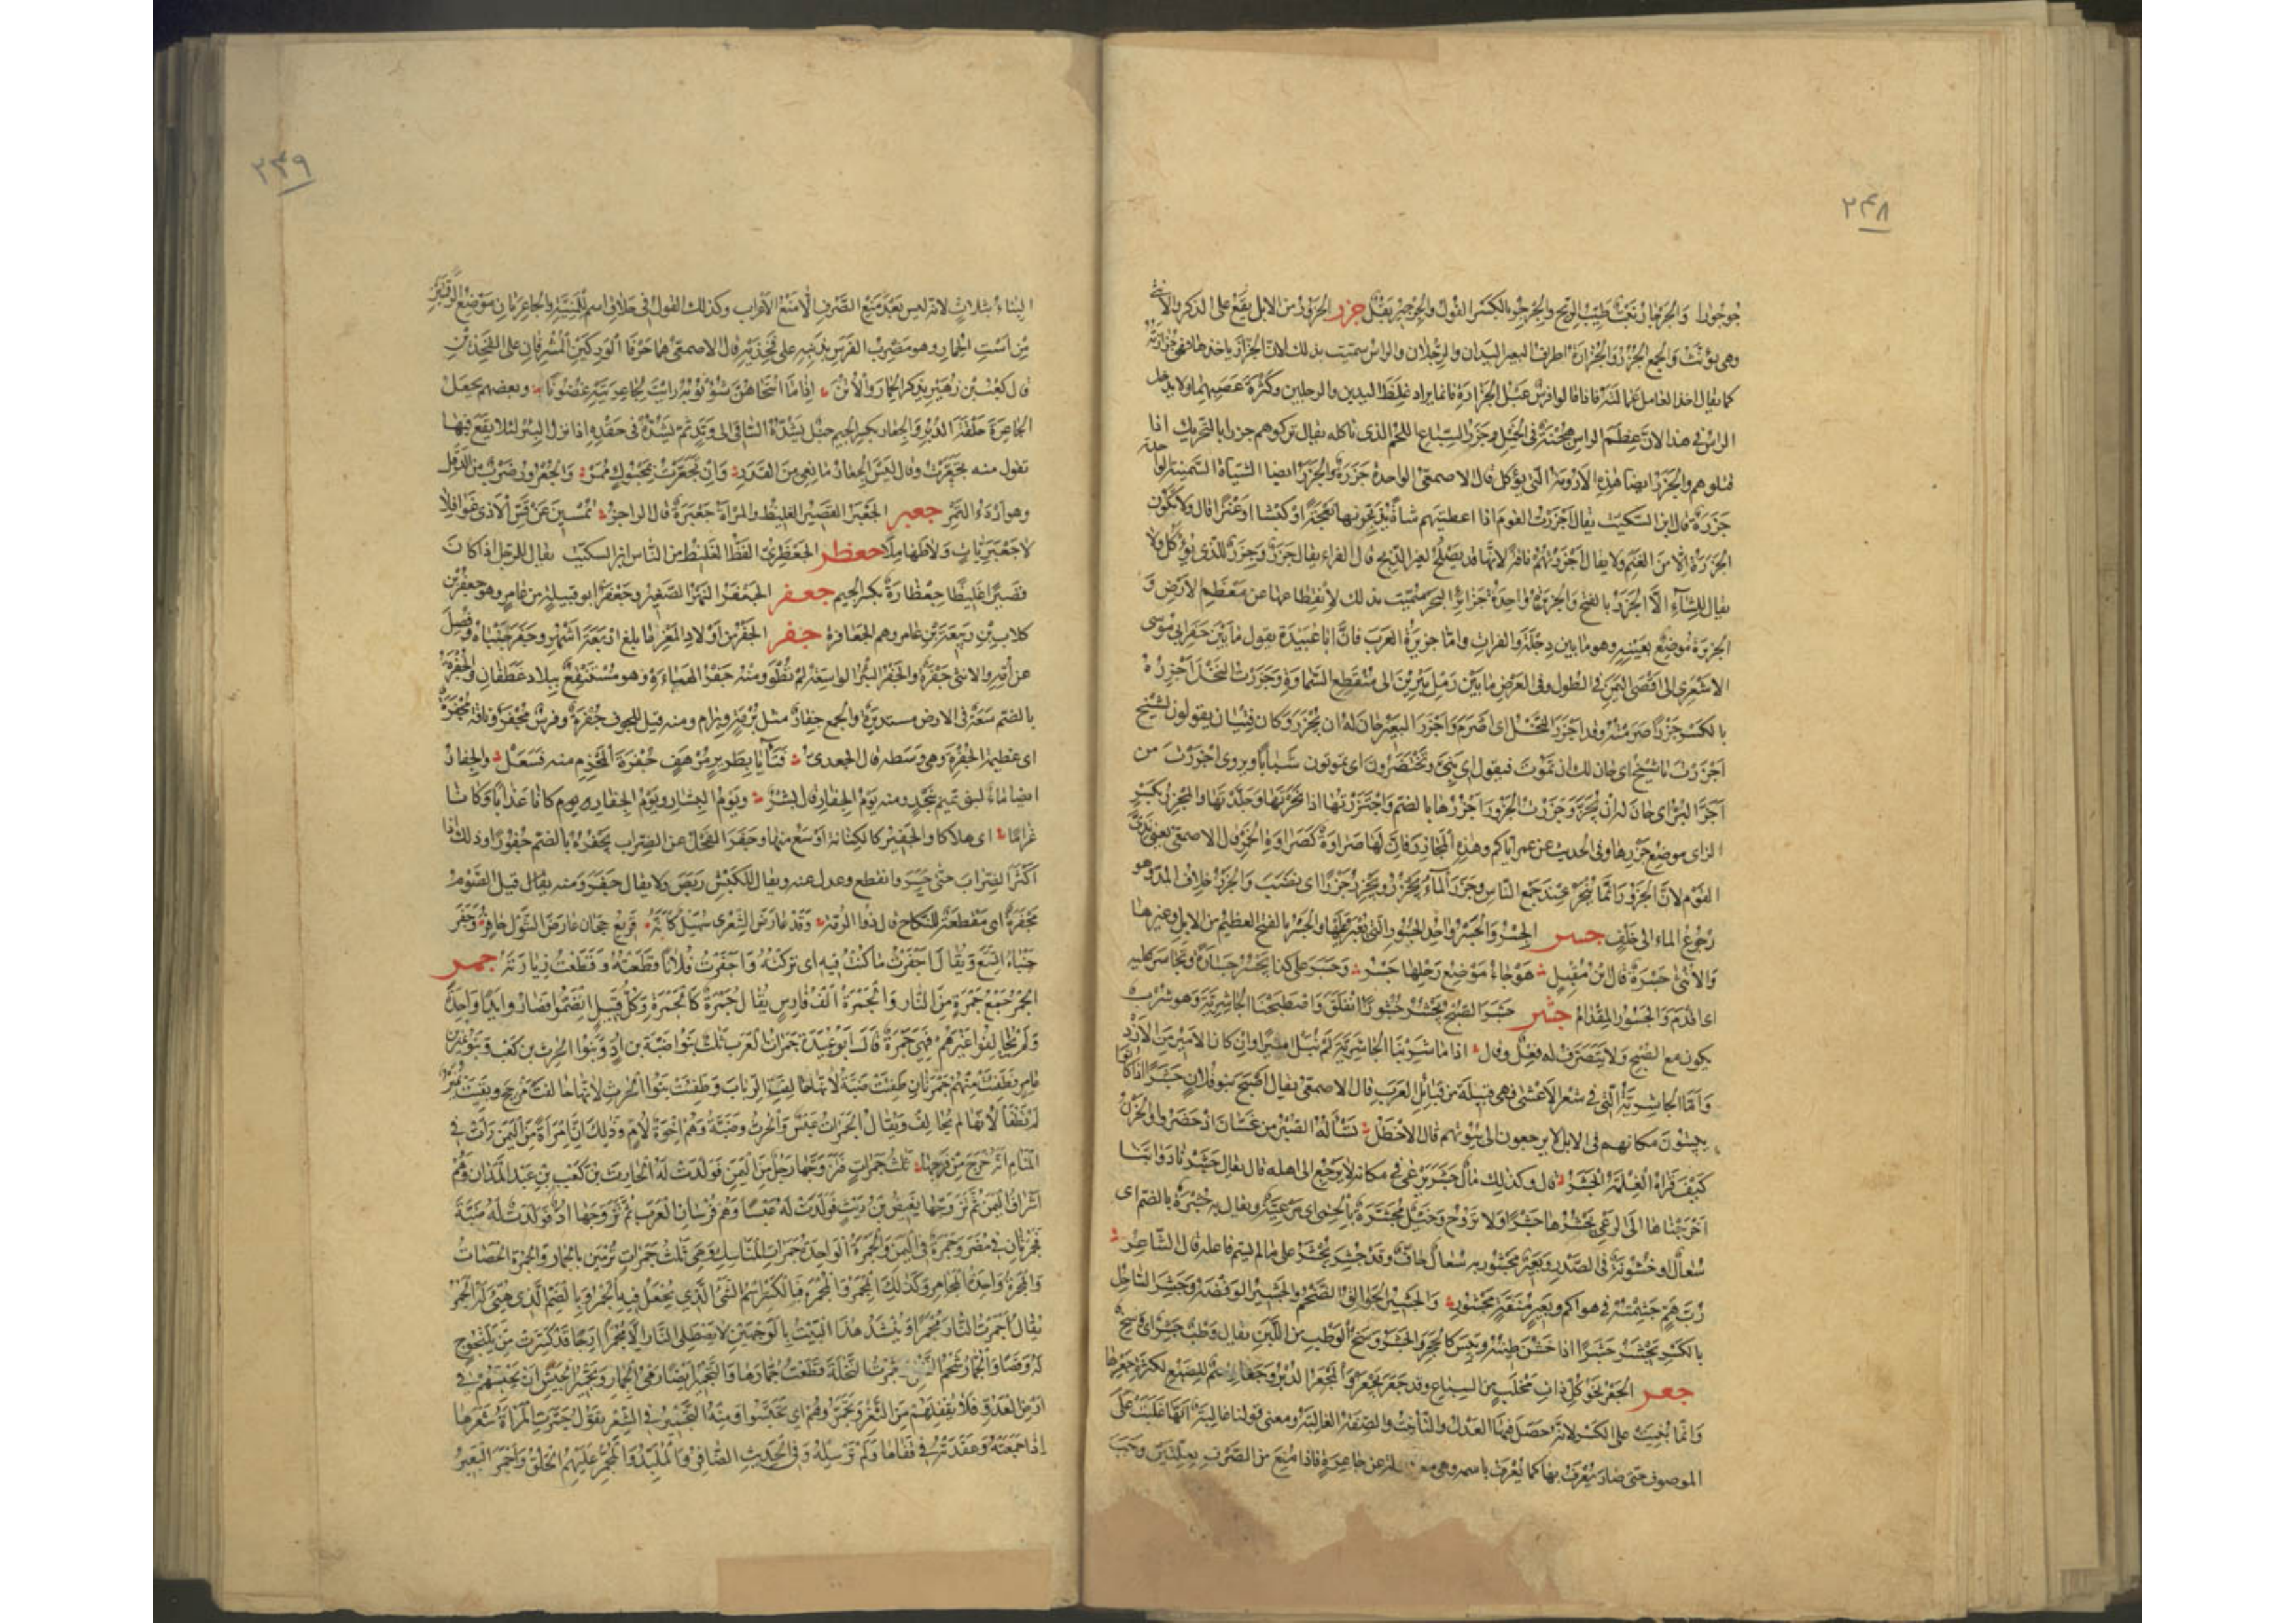 ٢٣٨
جزر الجزور من الابل يقع على الذكر والانثى
وهى تؤنث والجمع الجزر والجزارة اطراف البعير اليدان والرجلان والراس سميت بذلك لان الجزار ياخذها فهى جزارته
كما يقال اخذ العامل عمالته فاذا قالوا فرس عبل الجزارة فانما يراد غلظ اليدين والرجلين وكثرة عصبهما ولا يدخل
الراس فى هذا لان عظم الراس هجنة فى الخيل وجزر السباع اللحم الذى تاكله يقال تركوهم جزرا بالتحريك اذا
قتلوهم والجزر ايضا هذه الارومة التى تؤكل قال الاصمعى الواحدة جزرة والجزر ايضا الشياه السمينة الواحدة
جزرة قال ابن السكيت يقال اجزرت القوم اذا اعطيتهم شاة يذبحونها نعجة او كبشا او عنزا قال ولا تكون
الجزرة الا من الغنم ولا يقال اجزرتهم ناقة لانها قد تصلح لغير الذبح قال الفراء يقال جزر وجزر للذى يؤكل ولا
يقال للشاء الا الجزر بالفتح والجزيرة واحدة جزائر البحر سميت بذلك لانقطاعها عن معظم الارض و
الجزيرة موضع بعينه وهو ما بين دجلة والفرات واما جزيرة العرب فان ابا عبيدة يقول ما بين حفر ابى موسى
الاشعرى الى اقصى اليمن فى الطول وفى العرض ما بين رمل يبرين الى منقطع السماوة وجزرت النخل اجزره
بالكسر جزرا صرمته وقد اجزر النخل اى اصرم واجزر البعير حان له ان يجزر وكان فتيان يقولون لشيخ
اجزرت يا شيخ اى حان لك ان تموت فيقول اى بنى وتختضرون اى تموتون شبابا ويروى اجززت من
اجز البر اى حان له ان يجز وجزرت الجزور اجزرها بالضم واجتزرتها اذا نحرتها وجلدتها والمجزر بكسر
الزاى موضع جزرها وفى الحديث عن عمر اياكم وهذه المجازر فان لها ضراوة كضراوة الخمر قال الاصمعى يعنى ندى
القوم لان الجزور انما تنحر عند جمع الناس وجزر الماء يجزر ويجزر جزرا اى نضب والجزر خلاف المد وهو
رجوع الماء الى خلف جسر الجسر والجسر واحد الجسور التى يعبر عليها والجسر بالفتح العظيم من الابل وغيرها
والانثى جسرة قال ابن مقبل هوجاء موضع رحلها جسر وجسر على كذا يجسر جسارة وتجاسر عليه
اى اقدم والجسور المقدام جشر جشر الصبح يجشر جشورا انفلق واصطبحنا الجاشرية وهو شرب
يكون مع الصبح ولا يتصرف له فعل وقال اذا ما شربنا الجاشرية لم نبل اميرا وان كان الامير من الازد
واما الجاشرية التى فى شعر الاعشى فهى قبيلة من قبائل العرب قال الاصمعى يقال اصبح بنو فلان جشرا اذا كانوا
يبيتون مكانهم فى الابل لا يرجعون الى بيوتهم قال الاخطل تسأله الصبر من غسان اذ حضروا والحزن
كيف قراه الغلمة الجشر قال وكذلك مال جشر يرعى فى مكانه لا يرجع الى اهله قال يقال جشرنا دوابنا
اخرجناها الى الرعى نجشرها جشرا ولا تروح وخيل مجشرة بالحمى اى مرعية ويقال به جشرة بالضم اى
سعال او خشونة فى الصدر وبعير مجشور به سعال جاف وقد جشر يجشر على ما لم يسم فاعله قال الشاعر
رب هم جشمته فى هواكم وبعير منفه مجشور والجشير الجوالق الضخم والجشير الوفضة وجشر الساحل
بالكسر يجشر جشرا اذا خشن طينه ويبس كالحجر والجشر وسخ الوطب من اللبن يقال وطب جشر اى وسخ
جعر الجعر نجو كل ذات مخلب من السباع وقد جعر يجعر والمجعر الدبر وجعار اسم للضبع لكثرة جعرها
وانما بنيت على الكسر لانه حصل فيها العدل والتأنيث والصفة الغالبة ومعنى قولنا غالبة انها غلبت على
الموصوف حتى صار يعرف بها كما يعرف باسمه وهى معدولة عن جاعرة فاذا منع من الصرف بعلتين وجب
٢٣٩
البناء بثلاث لانه ليس بعد منع الصرف الا منع الاعراب وكذلك القول فى حلاق اسم للمنية والجاعرتان موضع الرقمتين
من است الحمار وهو مضرب الفرس بذنبه على فخذيه قال الاصمعى هما حرفا الوركين المشرفان على الفخذين
قال كعب بن زهير يذكر الحمار والاتن اذا ما انتحاهن شؤبوبه رايت لجاعرتيه غضونا وبعضهم يجعل
الجاعرة حلقة الدبر والجعار بكسر الجيم حبل يشده الساقى الى وتد ثم يشده فى حقوه اذا نزل البئر لئلا يقع فيها
تقول منه تجعرت وقال ليس الجعار مانعى من القدر وان تجعرت بمحبوك ممر والجعرور ضرب من الدقل
وهو اردء التمر جعبر الجعبر القصير الغليظ والمراة جعبرة قال الراجز يمسين عن قس الاذى غوافلا
لا جعبريات ولا طهاملا جعظر الجعظرى الفظ الغليظ من الناس ابن السكيت يقال للرجل اذا كان
قصيرا غليظا جعظارة بكسر الجيم جعفر الجعفر النهر الصغير وجعفر ابو قبيلة من عامر وهو جعفر بن
كلاب بن ربيعة بن عامر وهم الجعافرة جفر الجفر من اولاد المعز ما بلغ اربعة اشهر وجفر جنباه وفصل
عن امه والانثى جفرة والجفر البئر الواسعة لم تطو ومنه جفر الهباءة وهو مستنقع ببلاد غطفان والجفرة
بالضم سعة فى الارض مستديرة والجمع جفار مثل برمة وبرام ومنه قيل للجوف جفرة وفرس مجفر وناقة مجفرة
اى عظيمة الجفرة وهى وسطه قال الجعدى فتآيا بطرير مرهف جفرة المحزم منه فسعل والجفار
ايضا ماء لبنى تميم بنجد ومنه يوم الجفار قال بشر ويوم النسار ويوم الجفار كانا عذابا وكانا
غراما اى هلاكا والجفير كالكنانة اوسع منها وجفر الفحل عن الضراب يجفر بالضم جفورا وذلك اذا
اكثر الضراب حتى حسر وانقطع وعدل عنه ويقال للكبش ربض ولا يقال جفر ومنه يقال قيل الصوم
مجفرة اى مقطعة للنكاح قال ذو الرمة وقد عارض الشعرى سهيل كانه قريع هجان عارض الشول جافر وجفر
جنباه اتسع ويقال اجفرت ما كنت فيه اى تركته واجفرت فلانا قطعته وقطعت زيارته جمر
الجمر جمع جمرة من النار والجمرة الف فارس يقال جمرة كالجمرة وكل قبيل انضموا فصاروا يدا واحدة
ولم يحالفوا غيرهم فهى جمرة قال ابو عبيدة جمرات العرب ثلث بنو ضبة بن اد وبنوا الحرث بن كعب وبنو نمير بن
عامر فطفئت منهم جمرتان طفئت ضبة لانها حالفت الرباب وطفئت بنوا الحرث لانها حالفت مذحج وبقيت نمير
لم تطفأ لانها لم تحالف ويقال الجمرات عبس والحرث وضبة وهم اخوة لام وذلك ان امراة من اليمن رات فى
المنام انه خرج من فرجها ثلث جمرات فتزوجها رجل من اليمن فولدت له الحارث بن كعب بن عبد المدان وهم
اشراف اليمن ثم تزوجها بغيض بن ريث فولدت له عبسا وهم فرسان العرب ثم تزوجها اد فولدت له ضبة
فجمرتان فى مضر وجمرة فى اليمن والجمرة الواحدة جمرات المناسك وهى ثلث جمرات يرمين بالجمار والجمرة الحصاة
والمجمرة واحدة المجامر وكذلك المجمر والمجمر فبالكسر اسم الشئ الذى يجعل فيه الجمر وبالضم الذى هيئ له الجمر
يقال اجمرت النار مجمرا وينشد هذا البيت بالوجهين لا تصطلى النار الا مجمرا ارجا قد كسرت من يلنجوج
له وقصا والجمار شحم النخل جمرت النخلة قطعت جمارها والتجمير ايضا رمى الجمار وتجمير الجيش ان تحبسهم فى
ارض العدو فلا تقفلهم من الثغر وتجمروهم اى تحبسوا ومنه التجمير فى الشعر يقول جمرت المراة شعرها
اذا جمعته وعقدته فى قفاها ولم ترسله وفى الحديث الضافر والملبد والمجمر عليهم الحلق واجمر البعير